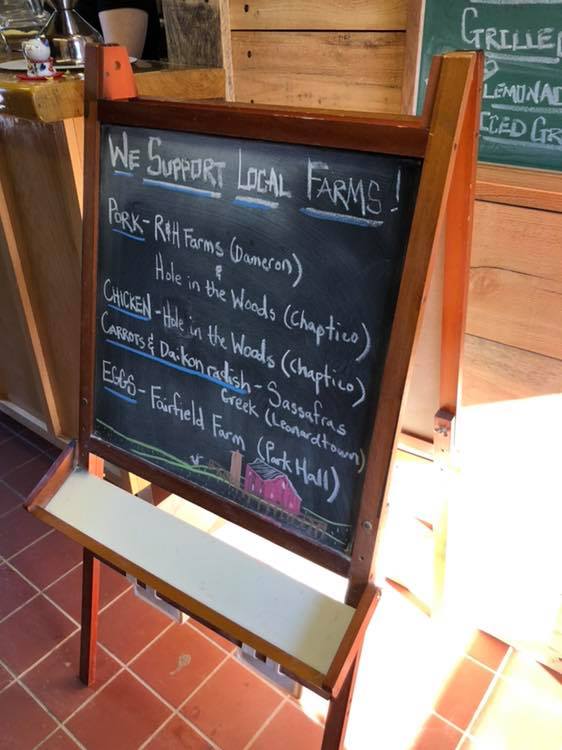 We Support Local Farms!
Pork - R&H Farms (Dameron)
&
Hole in the Woods (Chaptico)
Chicken - Hole in the Woods (Chaptico)
Carrots & Daikon radish - Sassafras
Creek (Leonardtown)
Eggs - Fairfield Farm (Park Hall)
Grilled
Lemonad
Iced Gr